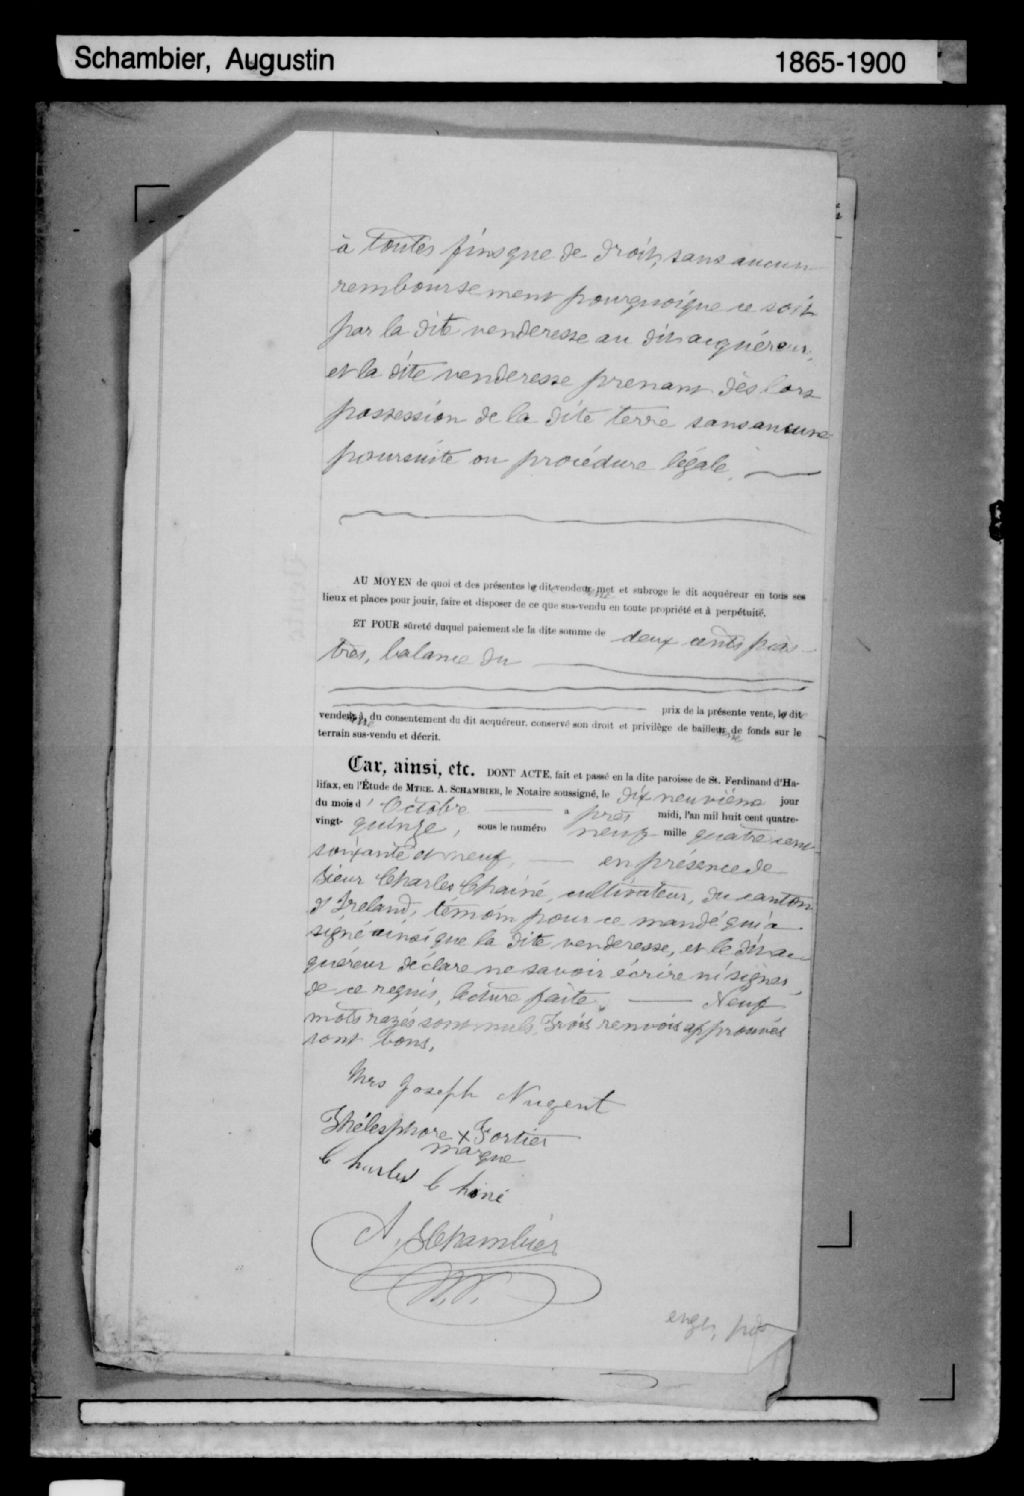 Schambier, Augustin 1865-1900
à toutes fins que de droit, sans aucun
remboursement pourquoique ce soit
par la dite venderesse au dit acquéreur,
et la dite venderesse prenant dès lors
possession de la dite terre sans aucune
poursuite ou procédure légale.
AU MOYEN de quoi et des présentes le dit vendeur met et subroge le dit acquéreur en tous ses
lieux et places pour jouir, faire et disposer de ce que sus-vendu en toute propriété et à perpétuité.
ET POUR sûreté duquel paiement de la dite somme de deux cents pias-
tres, balance du
prix de la présente vente, le dit
vendeur a, du consentement du dit acquéreur, conservé son droit et privilège de bailleur de fonds sur le
terrain sus-vendu et décrit.
Car, ainsi, etc. DONT ACTE, fait et passé en la dite paroisse de St. Ferdinand d'Ha-
lifax, en l'Étude de MTRE. A. SCHAMBIER, le Notaire soussigné, le dix neuvième jour
du mois d'Octobre après midi, l'an mil huit cent quatre-
vingt-quinze, sous le numéro neuf mille quatre cent
soixante et neuf, en présence de
Sieur Charles Chainé, cultivateur, du canton
d'Ireland, témoin pour ce mandé qui a
signé ainsi que la dite venderesse, et le dit ac-
quéreur déclare ne savoir écrire ni signer,
de ce requis, lecture faite. Neuf
mots rayés sont nuls, Trois renvois approuvés
sont bons.
Mrs Joseph Nugent
Thélesphore x Fortier
marque
Charles Chainé
A. Schambier
N.P.